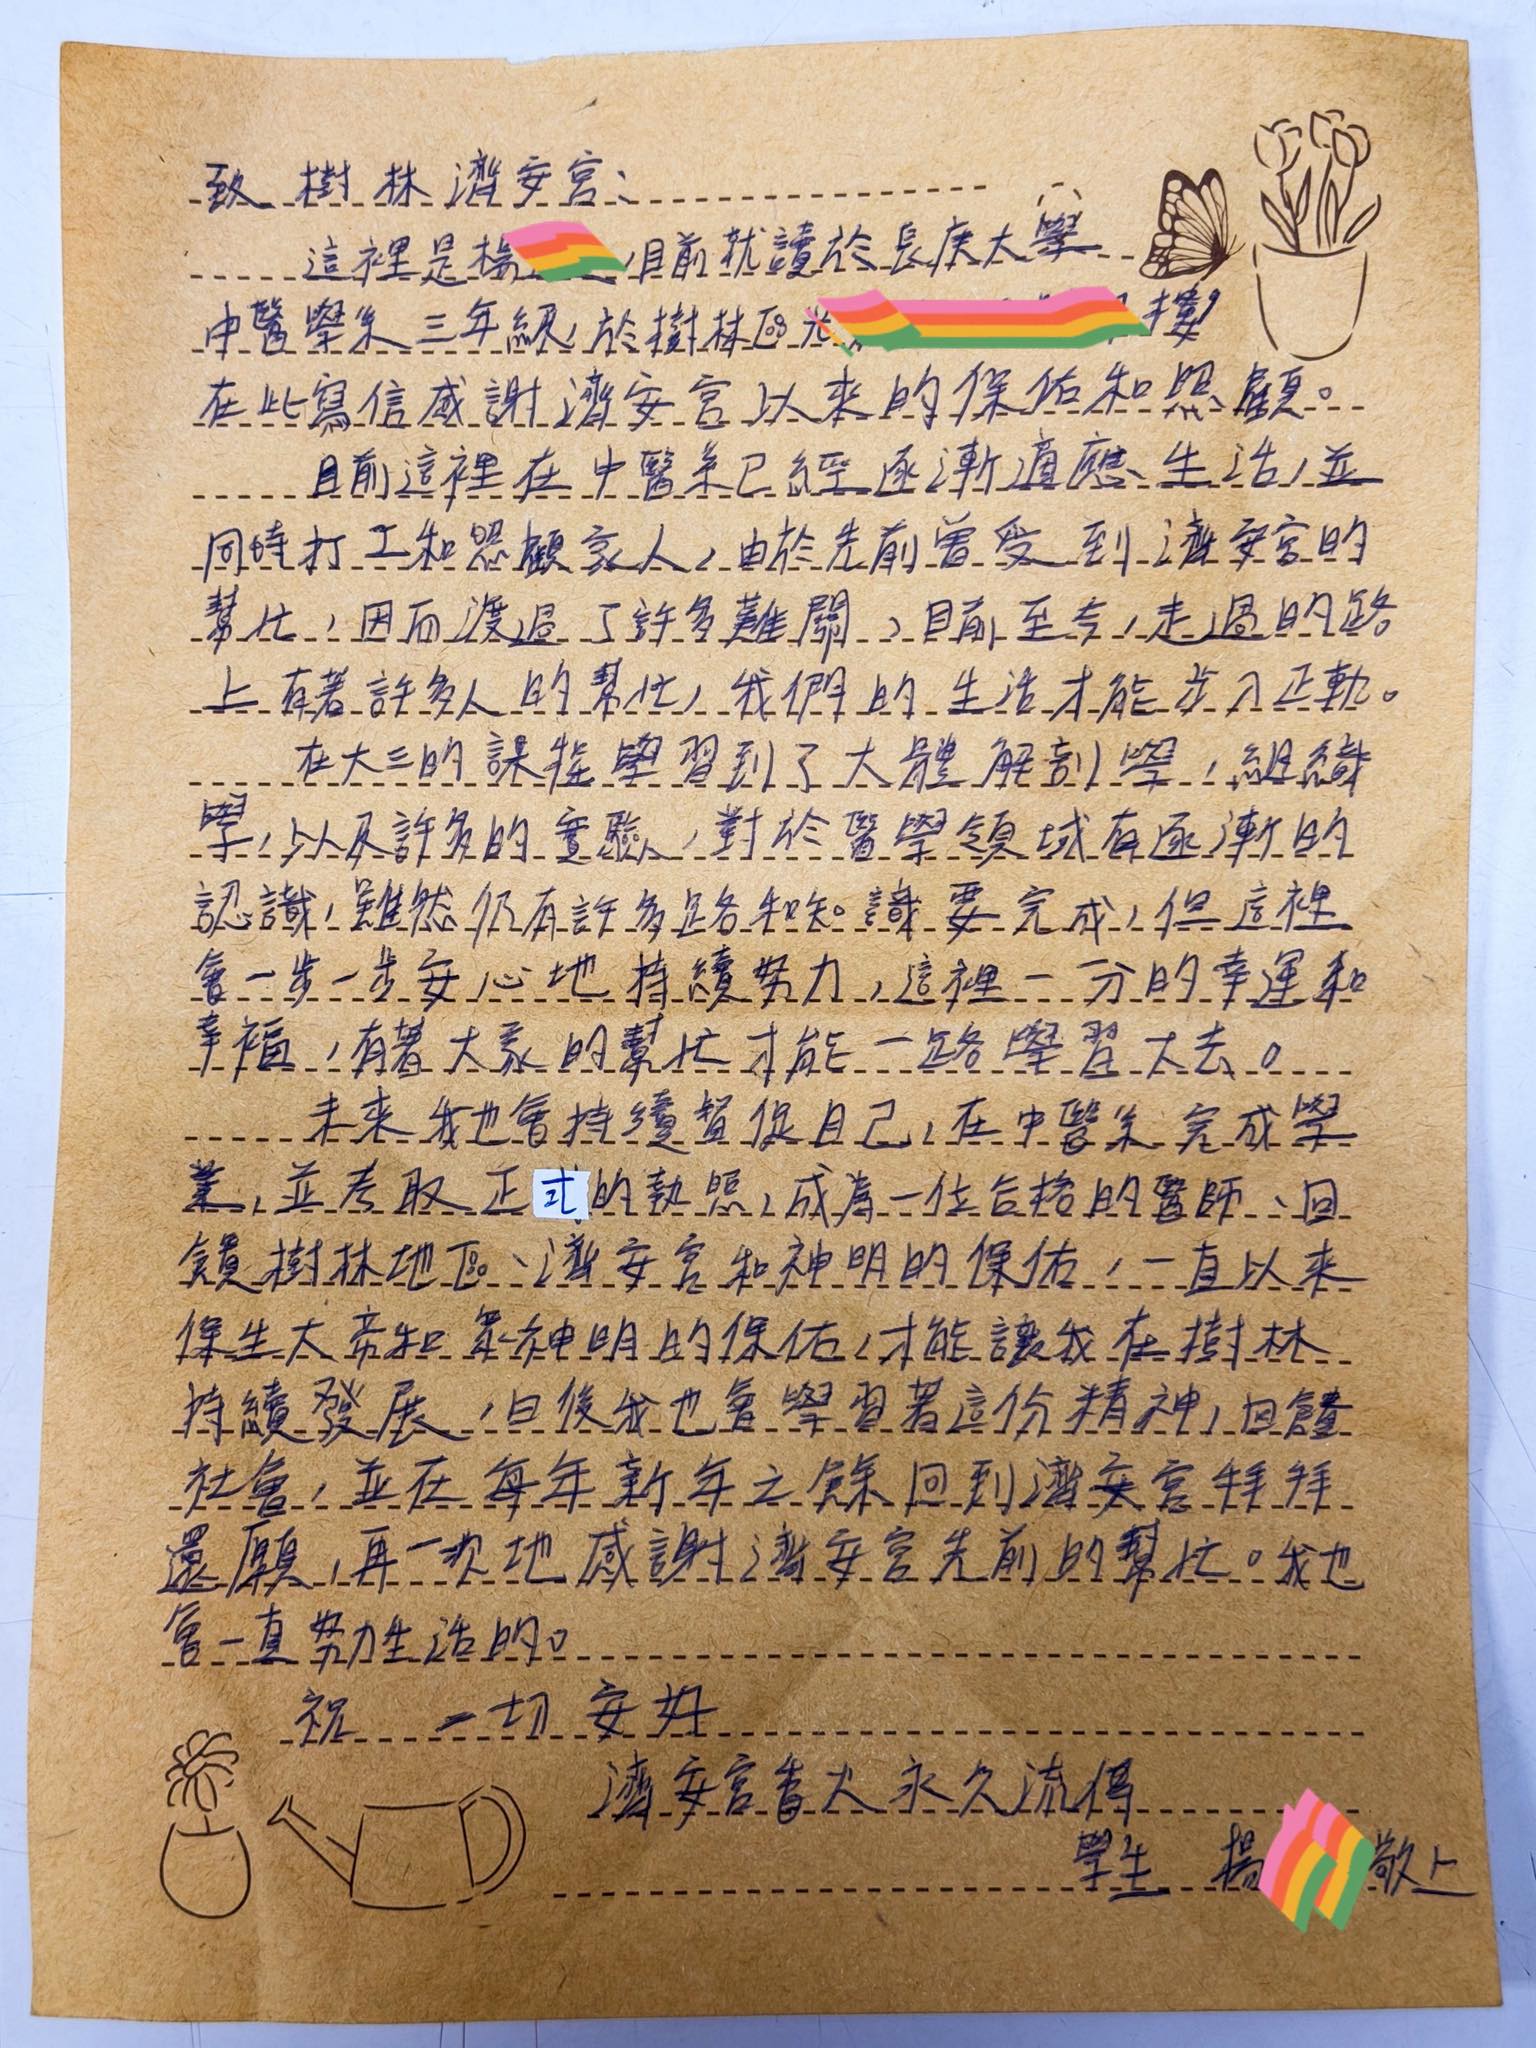 致 樹林濟安宮:
這裡是楊,目前就讀於長庚大學
中醫學系三年級,於樹林區光 樓,
在此寫信感謝濟安宮以來的保佑和照顧。
目前這裡在中醫系已經逐漸適應生活,並
同時打工和照顧家人,由於先前曾受到濟安宮的
幫忙,因而渡過了許多難關,目前至今,走過的路
上有著許多人的幫忙,我們的生活才能步入正軌。
在大三的課程學習到了大體解剖學,組織
學,以及許多的實驗,對於醫學領域有逐漸的
認識,雖然仍有許多路和知識要完成,但這裡
會一步一步安心地持續努力,這裡一分的幸運和
幸福,有著大家的幫忙才能一路學習大去。
未來我也會持續督促自己,在中醫系完成學
業,並考取正式的執照,成為一位合格的醫師、回
饋樹林地區、濟安宮和神明的保佑,一直以來
保生大帝和眾神明的保佑,才能讓我在樹林
持續發展,日後我也會學習著這份精神,回饋
社會,並在每年新年之餘回到濟安宮拜拜
還願,再一次地感謝濟安宮先前的幫忙。我也
會一直努力生活的。
祝 一切安好
濟安宮香火永久流傳
學生 楊 敬上